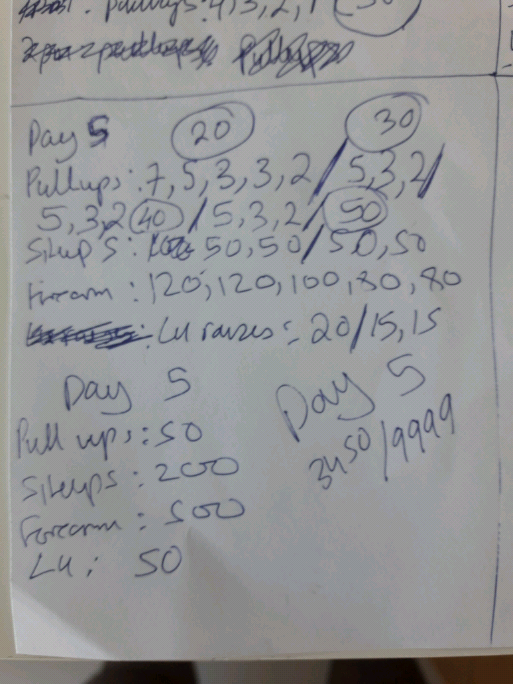 Pullups: 4, 3, 2, 1
Day 5 20 30
Pullups: 7, 5, 3, 3, 2 / 5, 3, 2 /
5, 3, 2 40 / 5, 3, 2 / 50
Situps: 50, 50 / 50, 50
Firearm: 120, 120, 100, 80, 80
: LU raises: 20 / 15, 15
Day 5
Pull ups: 50
Situps: 200
Forearm: 500
LU: 50
Day 5
3450/9999